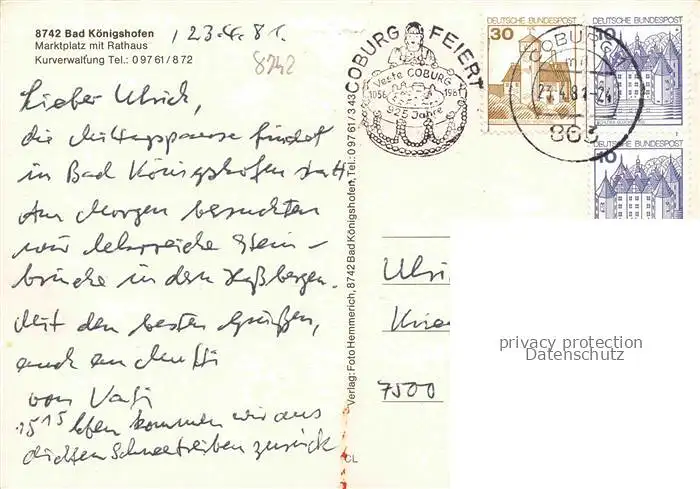 8742 Bad Königshofen
Marktplatz mit Rathaus
Kurverwaltung Tel.: 0 97 61 / 8 72
, 23.4.81.
8742
Lieber Ulrich,
die Mittagspause findet
in Bad Königshofen statt.
Am Morgen besuchten
wir lehrreiche Stein-
brüche in den Haßbergen.
Mit den besten Grüßen,
auch an Mutti
von Vati
15 15 kommen wir aus
dichtem Schneetreiben zurück
Verlag: Foto Hemmerich, 8742 Bad Königshofen, Tel.: 0 97 61 / 3 43
CL
COBURG FEIERT
Veste COBURG
1056 1981
925 Jahre
DEUTSCHE BUNDESPOST
30
COBURG
23.4.81-24
863
DEUTSCHE BUNDESPOST
10
DEUTSCHE BUNDESPOST
10
Ulri
7500
privacy protection
Datenschutz